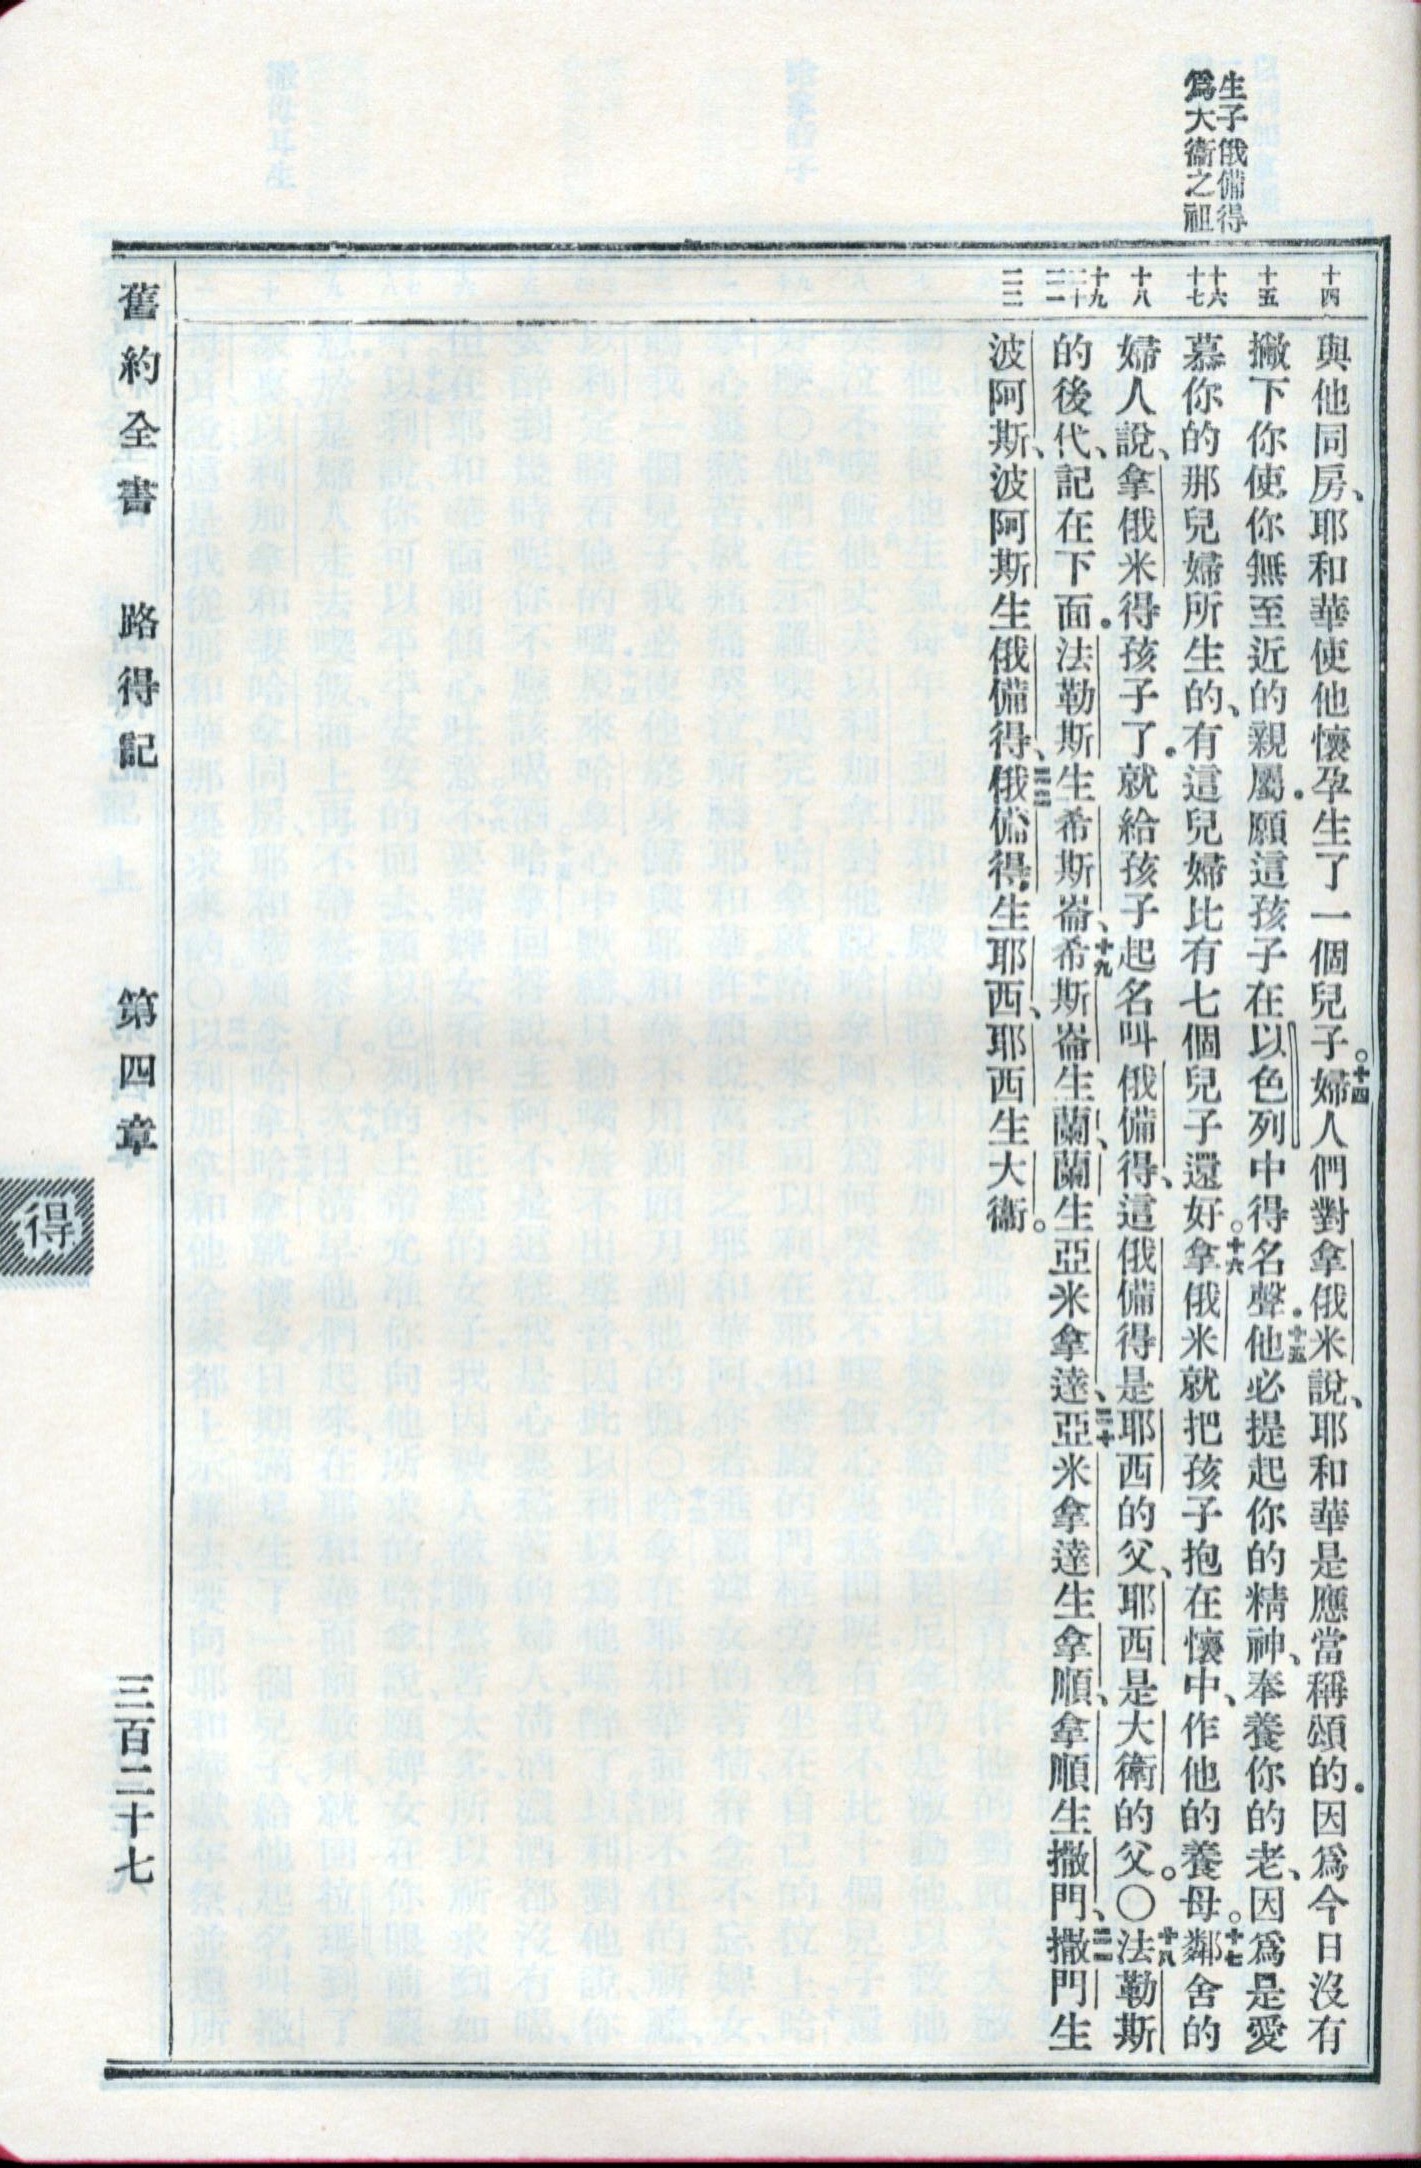 生子俄備得
爲大衞之祖
十四
十五
十六
十七
十八
十九
二十
二一
二二
與他同房、耶和華使他懷孕生了一個兒子。十四婦人們對拿俄米說、耶和華是應當稱頌的．因爲今日沒有
撇下你使你無至近的親屬．願這孩子在以色列中得名聲．十五他必提起你的精神、奉養你的老、因爲是愛
慕你的那兒婦所生的、有這兒婦比有七個兒子還好。十六拿俄米就把孩子抱在懷中、作他的養母。十七鄰舍的
婦人說、拿俄米得孩子了．就給孩子起名叫俄備得、這俄備得是耶西的父、耶西是大衛的父。〇十八法勒斯
的後代、記在下面．法勒斯生希斯崙、十九希斯崙生蘭、蘭生亞米拿達、二十亞米拿達生拿順、拿順生撒門、二一撒門生
波阿斯、波阿斯生俄備得、二二俄備得生耶西、耶西生大衞。
舊約全書 路得記 第四章 三百二十七
得